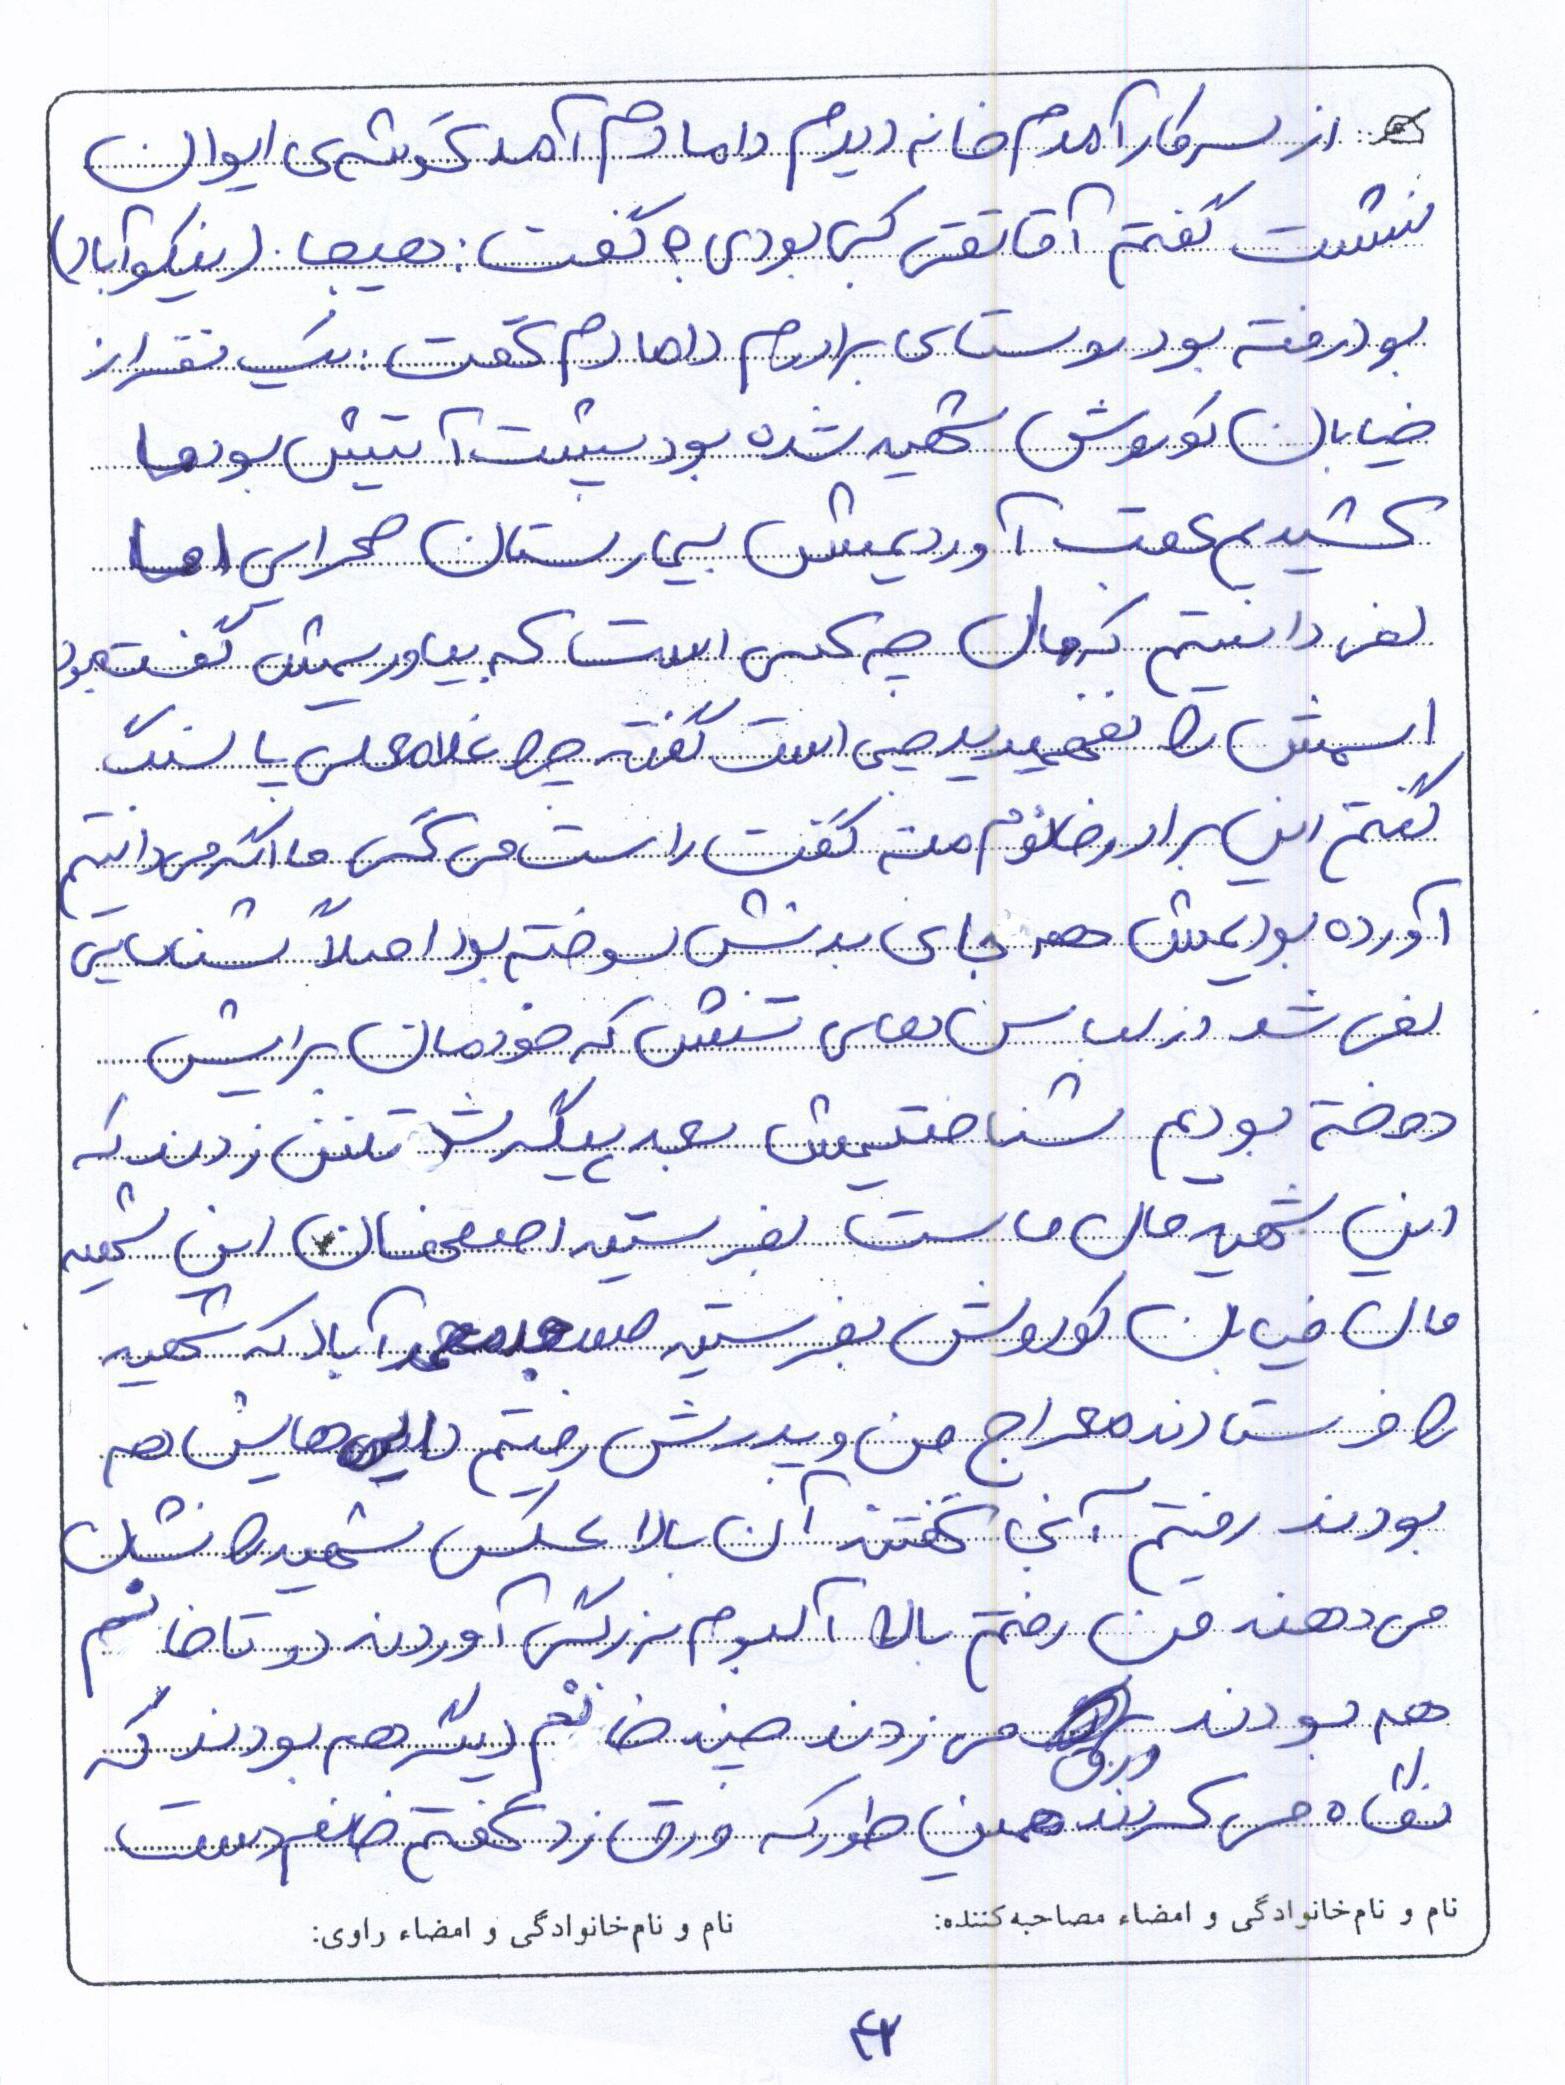 از سر کار آمدم خانه دیدم دامادم آمد گوشه‌ی ایوان
نشست گفتم آقا تقی کجا بودی؟ گفت: همینجا. (نیکوآباد)
بود رفته بود روستای برادرم دامادم گفت: یک نفر از
خیابان کوروش شهید شده بود پشت آتیش بود ما
کشیدیم عقب آوردیمش بیمارستان صحرایی اما
نمی دانستیم که مال چه کسی است که بیاوریمش گفته بود
اسمش را نفهمیدید چی است گفته چرا غلامعلی یا سنگ
گفتم این برادر خانوم منه گفت راست می گی ما اگر می دانستیم
آورده بودیمش همه جای بدنش سوخته بود اصلاً شناسایی
نمی شد از لباس های تنش که خودمان برایش
دوخته بودیم شناختیمش بعد پیگیر شد تلفن زدند که
این شهید مال ماست بفرستید اصفهان این شهید
مال خیابان کوروش بفرستید محمدآباد که شهید
را فرستادند معراج من و پدرش رفتیم دایی هایش هم
بودند رفتیم آنجا گفتند آن بالا عکس شهید را نشان
می دهند من رفتم بالا آلبوم بزرگی آوردند دو تا خانم
هم بودند ورق می زدند چند خانم دیگر هم بودند که
نگاه می کردند همین طور که ورق زد گفتم خانم دست
نام و نام‌خانوادگی و امضاء مصاحبه‌کننده: نام و نام‌خانوادگی و امضاء راوی:
۴۲